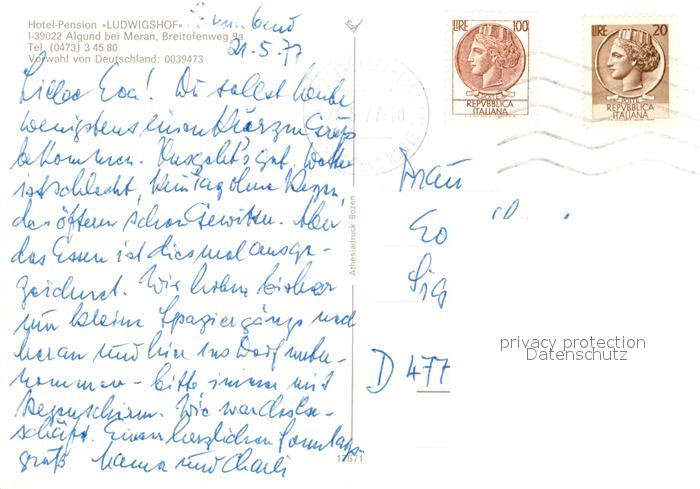 Hotel-Pension »LUDWIGSHOF«
I-39022 Algund bei Meran, Breitofenweg 9a
Tel. (0473) 3 45 80
Vorwahl von Deutschland: 0039473
21.5.77
Liebe Eva! Du sollst heute
wenigstens einen kurzen Gruß
bekommen. Uns geht's gut, Wetter
ist schlecht, kein Tag ohne Regen,
des öftern schon Gewitter. Aber
das Essen ist diesmal ausge-
zeichnet. Wir haben bisher
nur kleine Spaziergänge nach
Meran und hier ins Dorf unter-
nommen - bitte immer mit
Regenschirm. Wie war
Einen herzlichen Sonntags-
gruß Mama und Charli
12671
Athesiadruck Bozen
LIRE 100
POSTE
REPVBBLICA
ITALIANA
LIRE 20
POSTE
REPVBBLICA
ITALIANA
Frau
Sig
D 477
privacy protection
Datenschutz